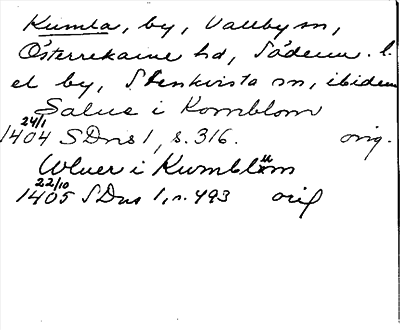 Kumla, by, Vallby sn,
Österrekarne hd, Söderm. l.
el by, Stenkvista sn, ibidem
Salue i Komblom
24/1
1404 SDns 1, s. 316. orig.
Uluer i Kumblæm
22/10
1405 SDns 1, s. 493 orig